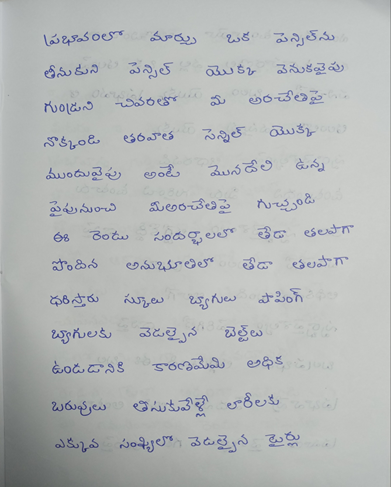 ప్రభావంలో మార్పు ఒక పెన్సిల్‌ను
తీసుకుని పెన్సిల్ యొక్క వెనుకవైపు
గుండ్రని చివరతో మీ అరచేతిపై
నొక్కండి తరవాత పెన్సిల్ యొక్క
ముందువైపు అంటే మొనదేలి ఉన్న
వైపునుంచి మీఅరచేతిపై గుచ్చండి
ఈ రెండు సందర్భాలలో తేడా తలపాగా
పొందిన అనుభూతిలో తేడా తలపాగా
ధరిస్తారు స్కూలు బ్యాగులు షాపింగ్
బ్యాగులకు వెడల్పైన బెల్ట్‌లు
ఉండడానికి కారణమేమి అధిక
బరువులు తీసుకువెళ్లే లారీలకు
ఎక్కువ సంఖ్యలో వెడల్పైన టైర్లు